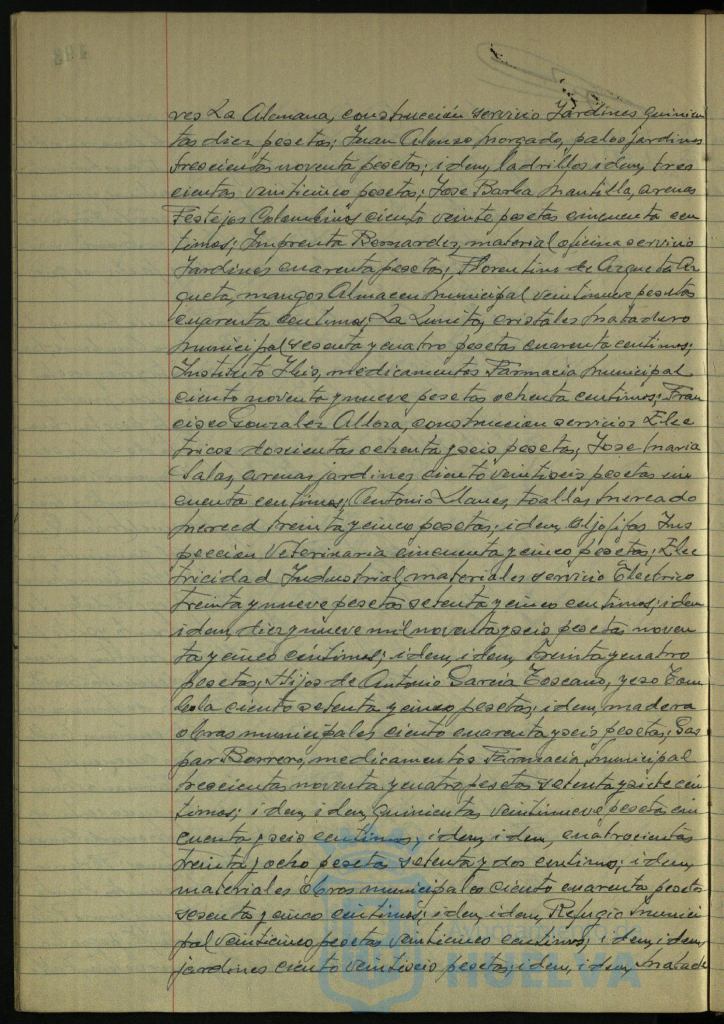 res La Alemana, construcción servicio Jardines quinien
tas diez pesetas; Juan Alonso Morgado, palos jardines
trescientas noventa pesetas; idem, ladrillos idem, tres
cientas veinticinco pesetas; José Barba Mantilla, arenas
Festejos Colombinos ciento veinte pesetas cincuenta cen
timos; Imprenta Bernardez, material oficina servicio
Jardines cuarenta pesetas; Florentino de Azqueta Az
queta, mangos Almacen Municipal veintinueve pesetas
cuarenta centimos; La Lunita, cristales Matadero
Municipal sesenta y cuatro pesetas cuarenta centimos;
Instituto Ibis, medicamentos Farmacia Municipal
ciento noventa y nueve pesetas ochenta centimos; Fran
cisco Gonzalez Allora, construccion servicios Elec
tricos doscientas ochenta y seis pesetas; José Maria
Salas, arenas jardines ciento veintiseis pesetas cin
cuenta centimos; Antonio Llanes, toallas Mercado
Merced treinta y cinco pesetas; idem, aljofifas Ins
peccion Veterinaria cincuenta y cinco pesetas; Elec
tricidad Industrial, materiales servicio Electrico
treinta y nueve pesetas setenta y cinco centimos; idem
idem, diez y nueve mil noventa y seis pesetas noven
ta y cinco céntimos; idem, idem, treinta y cuatro
pesetas; Hijos de Antonio Garcia Toscano, yeso Tom
bola ciento setenta y cinco pesetas; idem, madera
obras municipales ciento cuarenta y seis pesetas; Gas
par Borrero, medicamentos Farmacia Municipal
trescientas noventa y cuatro pesetas setenta y siete cén
timos; idem, idem, quinientas veintinueve pesetas cin
cuenta y seis centimos; idem, idem, cuatrocientas
treinta y ocho pesetas setenta y dos centimos; idem,
materiales obras municipales ciento cuarenta pesetas
sesenta y cinco céntimos; idem, idem, Refugio Munici
pal veinticinco pesetas veinticinco centimos; idem, idem,
jardines ciento veintiseis pesetas; idem, idem, Matade
Ayuntamiento de
HUELVA